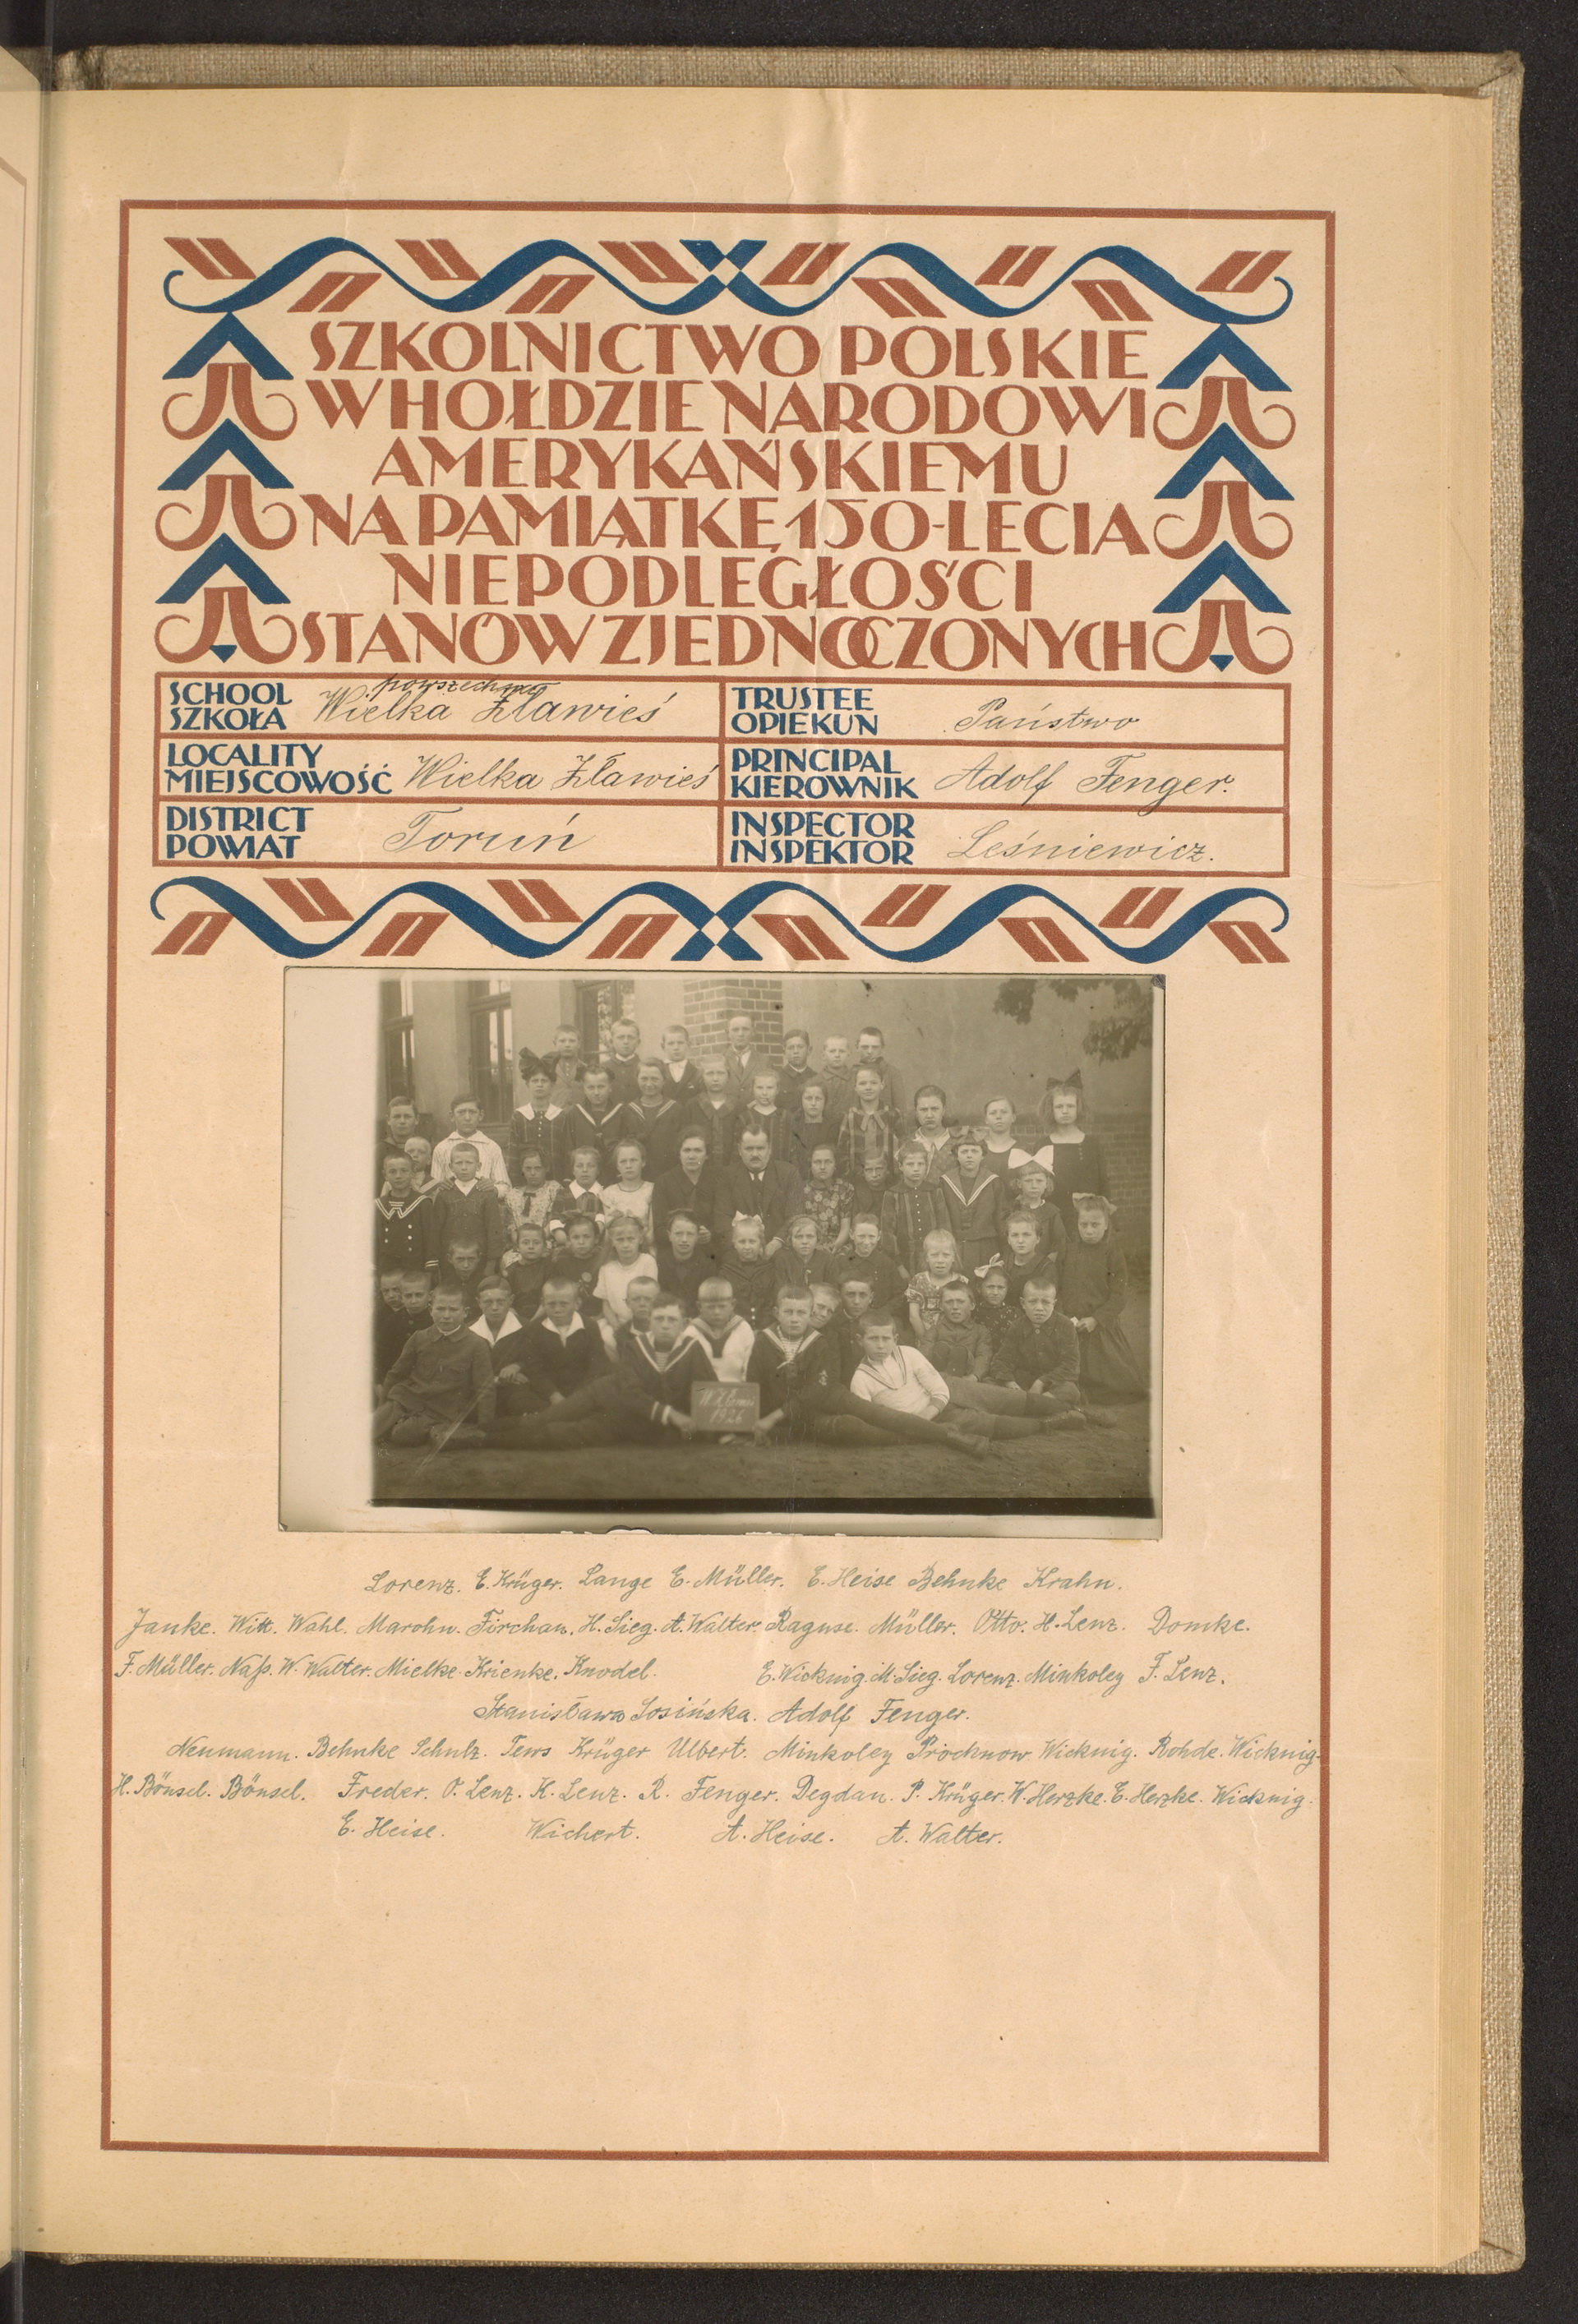 SZKOLNICTWO POLSKIE
W HOŁDZIE NARODOWI
AMERYKAŃSKIEMU
NA PAMIĄTKĘ 150-LECIA
NIEPODLEGŁOŚCI
STANÓW ZJEDNOCZONYCH
SCHOOL
SZKOŁA
powszechna
Wielka Zławieś
TRUSTEE
OPIEKUN
Państwo
LOCALITY
MIEJSCOWOŚĆ
Wielka Zławieś
PRINCIPAL
KIEROWNIK
Adolf Fenger.
DISTRICT
POWIAT
Toruń
INSPECTOR
INSPEKTOR
Leśniewicz.
1926
Lorenz. E. Krüger. Lange E. Müller. E. Heise Behnke Krahn.
Janke. Witt. Wahl. Marohn. Firchau. H. Sieg. A. Walter. Raguse. Müller. Otto. H. Lenz. Domke.
F. Müller. Naß. W. Walter. Mielke. Krienke. Knodel. E. Wicknig. M. Sieg. Lorenz. Minkoley F. Lenz.
Stanisława Sosińska. Adolf Fenger.
Neumann. Behnke Schulz. Tews Krüger Ulbert. Minkoley Procknow Wicknig. Rohde. Wicknig.
H. Bönsel. Bönsel. Freder. O. Lenz. K. Lenz. R. Fenger. Degdau. P. Krüger. W. Herzke. E. Herzke. Wicknig.
E. Heise. Wichert. A. Heise. A. Walter.